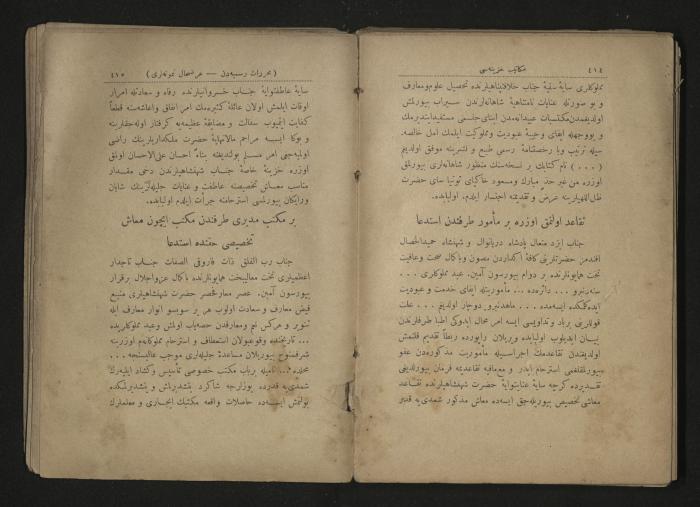 ٤١٤
مكاتيب خزينه‌سى
مملوكلرى سايۀ سنيۀ جناب خلافتپناهيلرنده تحصيل علوم ومعارف
و بو صورتله عنايات نامتناهيۀ شاهانه‌لرندن سيراب بيورلمش
اولديغمدن مكتسبات عبيدانه‌مدن ابناى جنسمى مستفيد ايتديرمك
و بووجهله ايفاى وجيبۀ عبوديت ومملوكيت ايلمك امل خالصه
سيله ترتيب ويا رخصتنامۀ رسمى طبع و نشرينه موفق اولديغم
(٠٠٠) نام كتابك بر نسخه‌سنك منظور شاهانه‌لرى بيورلمق
اوزره من غير حد مبارك ومسعود خاكپاى توتيا ساى حضرت
ظل اللهيلرينه عرض و تقديمنه اجتسار ايلدم. اولبابده.
تقاعد اولنمق اوزره بر مأمور طرفندن استدعا
جناب ايزد متعال پادشاه دريانوال و شهنشاه حميدالخصال
افندمز حضرتلرينى كافۀ اكداردن مصون وباكمال صحت وعافيت
تخت همايونلرنده بر دوام بيورسون آمين. عبد مملوكلرى ٠٠٠
سنه‌دنبرو ٠٠٠ دائره‌ده ٠٠٠ مأموريتله ايفاى خدمت و عبوديت
ايده‌كلمكده ايسه‌مده ٠٠٠ ماهدنبرو دوچار اولديغم ٠٠٠ علت
قوللرينى برباد وتداويسى ايسه امر محال ايدوكى اطبا طرفلرندن
بيان ايديلوب اولبابده ويريلان راپورده ربطاً تقديم قلنمش
اولديغندن تقاعدمك اجراسيله مأموريت مذكوره‌دن عفو
بيورلمقلغمى استرحام ايدر و مع‌مافيه تقاعدمه فرمان بيورلديغى
تقديرده كرچه سايۀ عنايتوايۀ حضرت شهنشاهيلرنده تقاعد
معاشى تخصيص بيوريله‌جق ايسه‌ده معاش مذكور شمدى‌يه قدر
(محررات رسميه‌دن — عرضحال نمونه‌لرى)
٤١٥
سايۀ عاطفتوايۀ جناب خسروانيلرنده رفاه و سعادتله امرار
اوقات ايلمش اولان عائلۀ كثيره‌مك امر انفاق واعاشه‌سنه قطعاً
كفايت ايتميوب سفالت و مضايقۀ عظيمه‌يه گرفتار اوله‌جقلرينه
و بوكا ايسه مراحم مالانهايۀ حضرت ملكداريلرينك راضى
اوليه‌جغى امر مسلم بولنديغنه بناءً احسان على الاحسان اولمق
اوزره خزينۀ خاصۀ جناب شهنشاهيلرندن دخى مقدار
مناسب معاش تخصيصنه عاطفت و عنايات جليله‌لرينك شايان
ورايگان بيورلمسى استرحامنه جرأت ايلدم اولبابده.
بر مكتب مديرى طرفندن مكتب ايچون معاش
تخصيصى حقنده استدعا
جناب رب الفلق ذات فاروقى الصفات جناب تاجدار
اعظميلرينى تخت معاليبخت همايونلرنده باكمال عزواجلال برقرار
بيورسون آمين. عصر معارفحصر حضرت شهنشاهيلرى منبع
فيض معارف و سعادت اولوب هر بر سو بسو انوار معارف ايله
تنوير و هركس نعم ومعارفدن حصه‌ياب اولمش وعبد مملوكلريده
٠٠٠ تاريخنده وقوعبولان استعطاف و استرحام مملوكانه‌م اوزرينه
شرفسنوح بيوريلان مساعدۀ جليله‌لرى موجب عاليسنجه ٠٠٠
محلده ٠٠٠ ناميله برباب مكتب خصوصى تأسيس وكشاد ايليه‌رك
شمدى‌يه قدرده يوزلرجه شاكرد يتشديرمش و يتشديرلمكده
بولنمش ايسه‌ده حاصلات واقعه مكتبك ايجارى و معلملرك